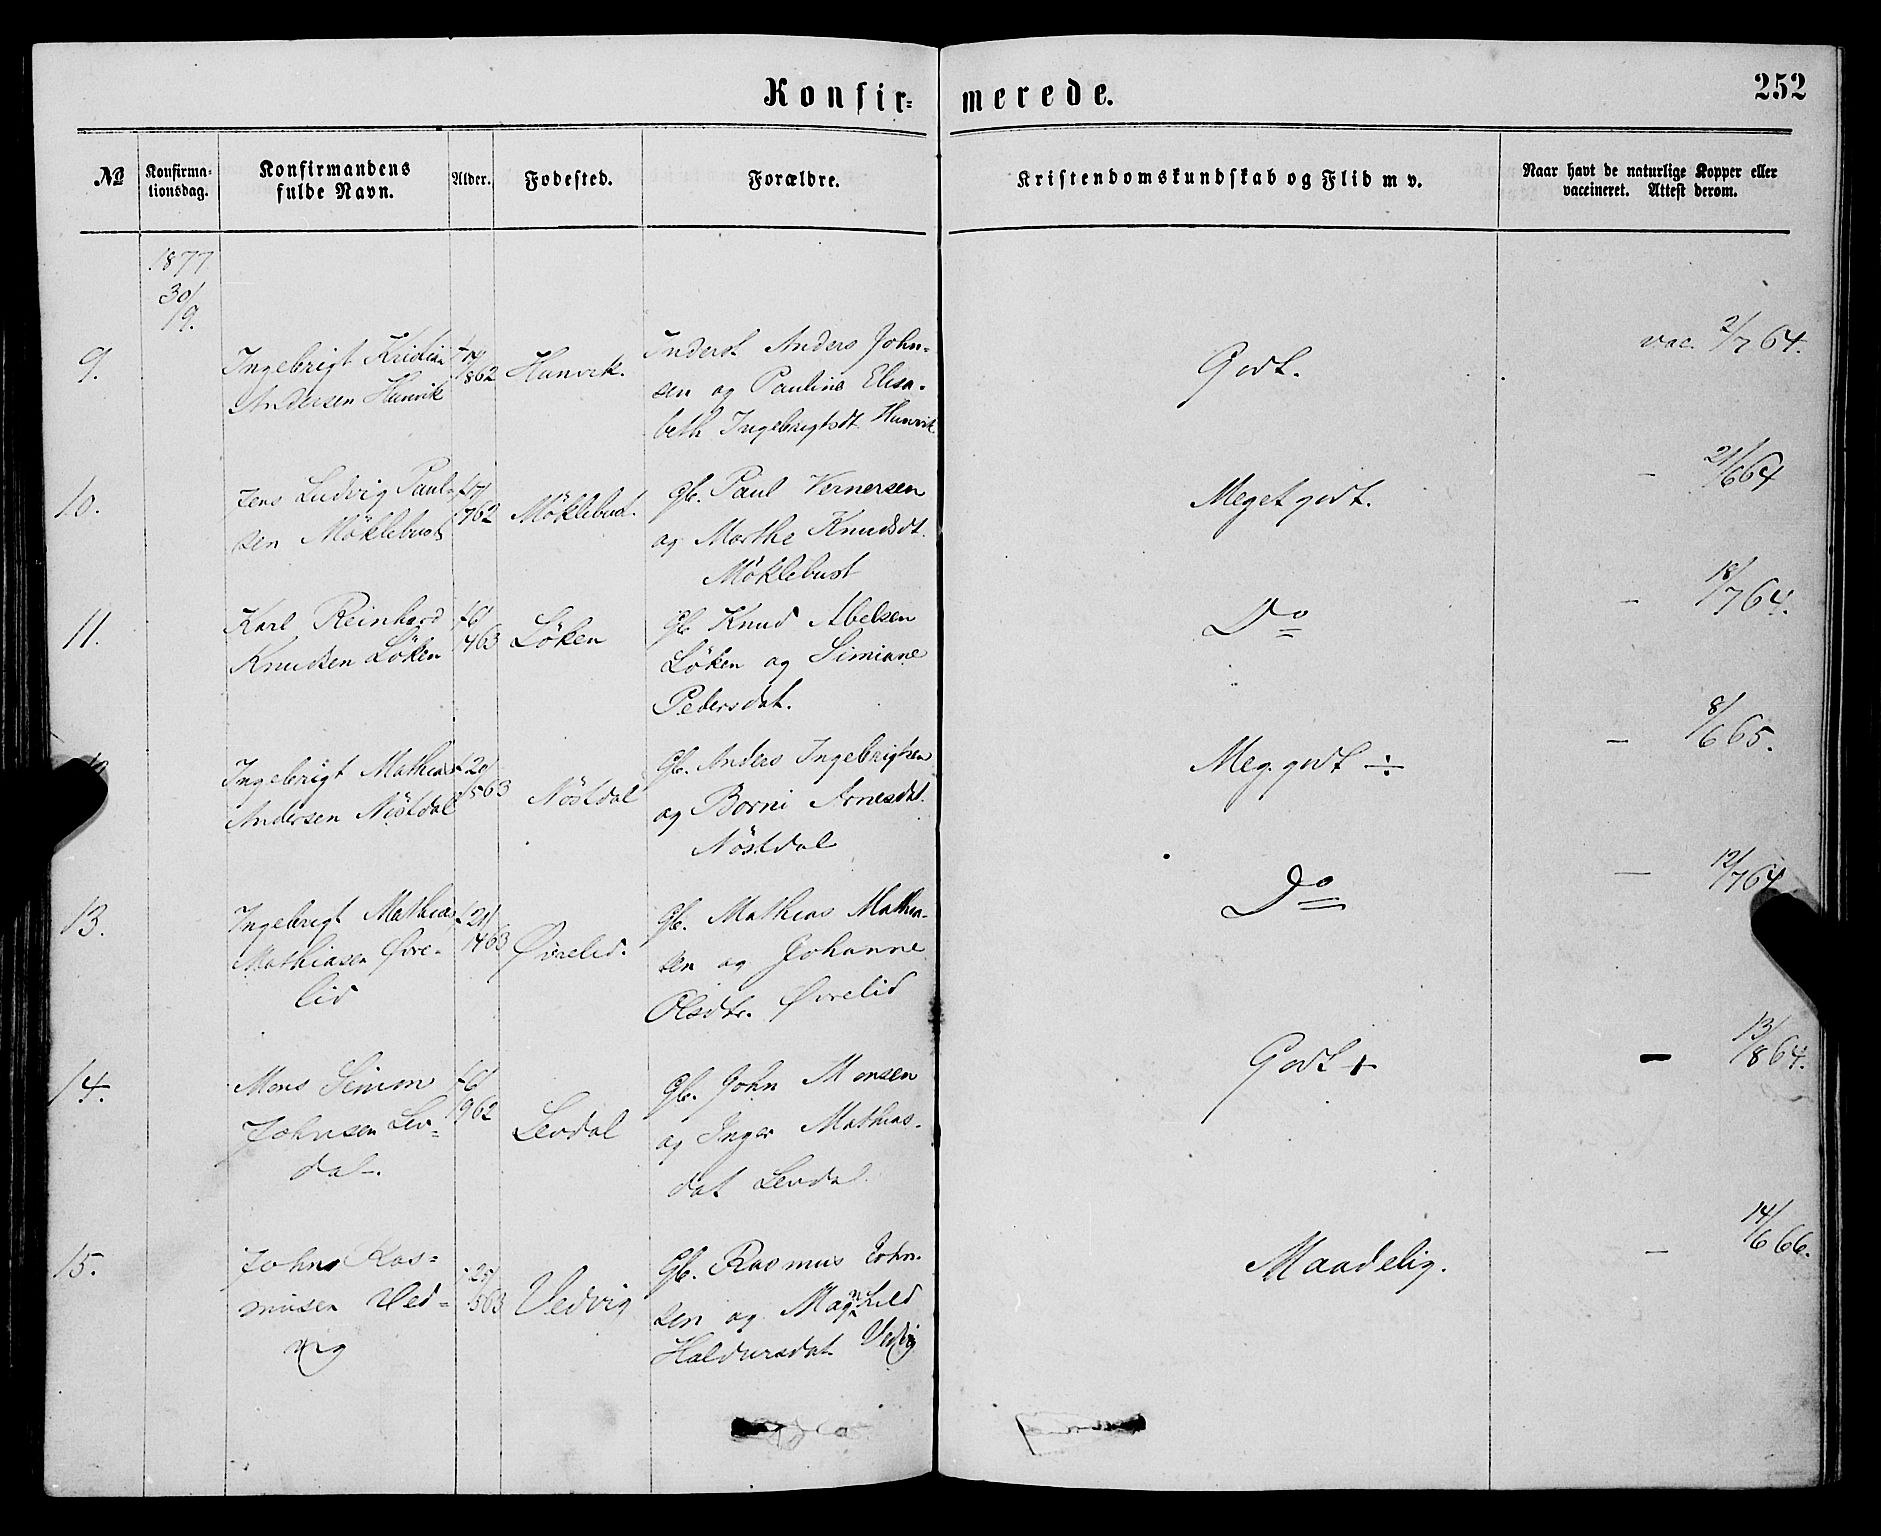 Konfirmerede.
252
№
Konfirma-
tionsdag.
Konfirmandens
fulde Navn.
Alder.
Fødested.
Forældre.
Kristendomskundskab og Flid m v.
Naar havt de naturlige Kopper eller
vaccineret. Attest derom.
1877
30/9.
9.
Ingebrigt Kristian
Andersen Hunvik
862
Hunvik.
Inderst Anders John-
sen og Pauline Elisa-
beth Ingebrigtsdt Hunvik
Godt.
vac. 2/7 64.
10.
Jens Ludvig Paul-
sen Möklebust
762
Möklebust.
Gb. Paul Vernersen
og Marthe Knudsdt.
Möklebust
Meget godt.
- 21/6 64
11.
Karl Reinhard
Knudsen Löken
463
Löken
Gb. Knud Abelsen
Löken og Simiane
Pedersdat.
Do
- 18/7 64.
Ingebrigt Mathias
Andersen Nöstdal
20/5 63
Nöstdal
Gb. Anders Ingebrigtsen
og Borni Arnesdat.
Nöstdal
Meg. godt ÷
- 8/6 65.
13.
Ingebrigt Mathias
Mathiasen Øvre-
lid
21/4 63
Øvrelid.
Gb. Mathias Mathia-
sen og Johanne
Olsdtr. Øvrelid
Do
- 12/7 64
14.
Mons Simon
Johnsen Lev-
dal.
962
Levdal
Gb. John Monsen
og Inger Mathias-
dat Levdal
Godt +
- 13/8 64.
15.
Johns Ras-
musen Ved-
vig
563
Vedvig
Gb. Rasmus John-
sen og Magnhild
Haldorsdat. Vedvig
Maadelig.
- 14/6 66.